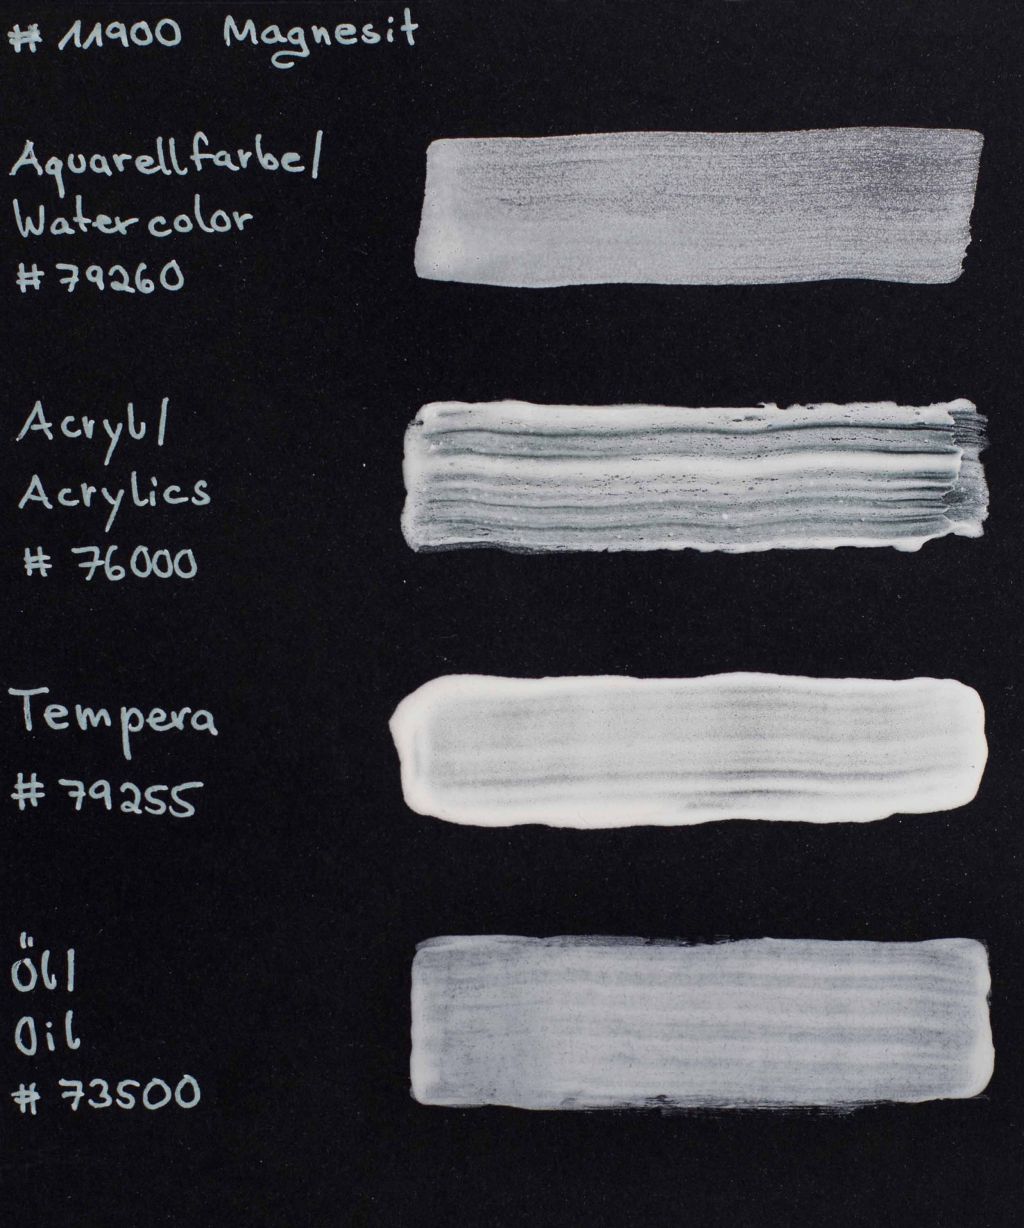 # 11900 Magnesit
Aquarellfarbe/
Watercolor
# 79260
Acryl/
Acrylics
# 76000
Tempera
# 79255
Öl/
Oil
# 73500